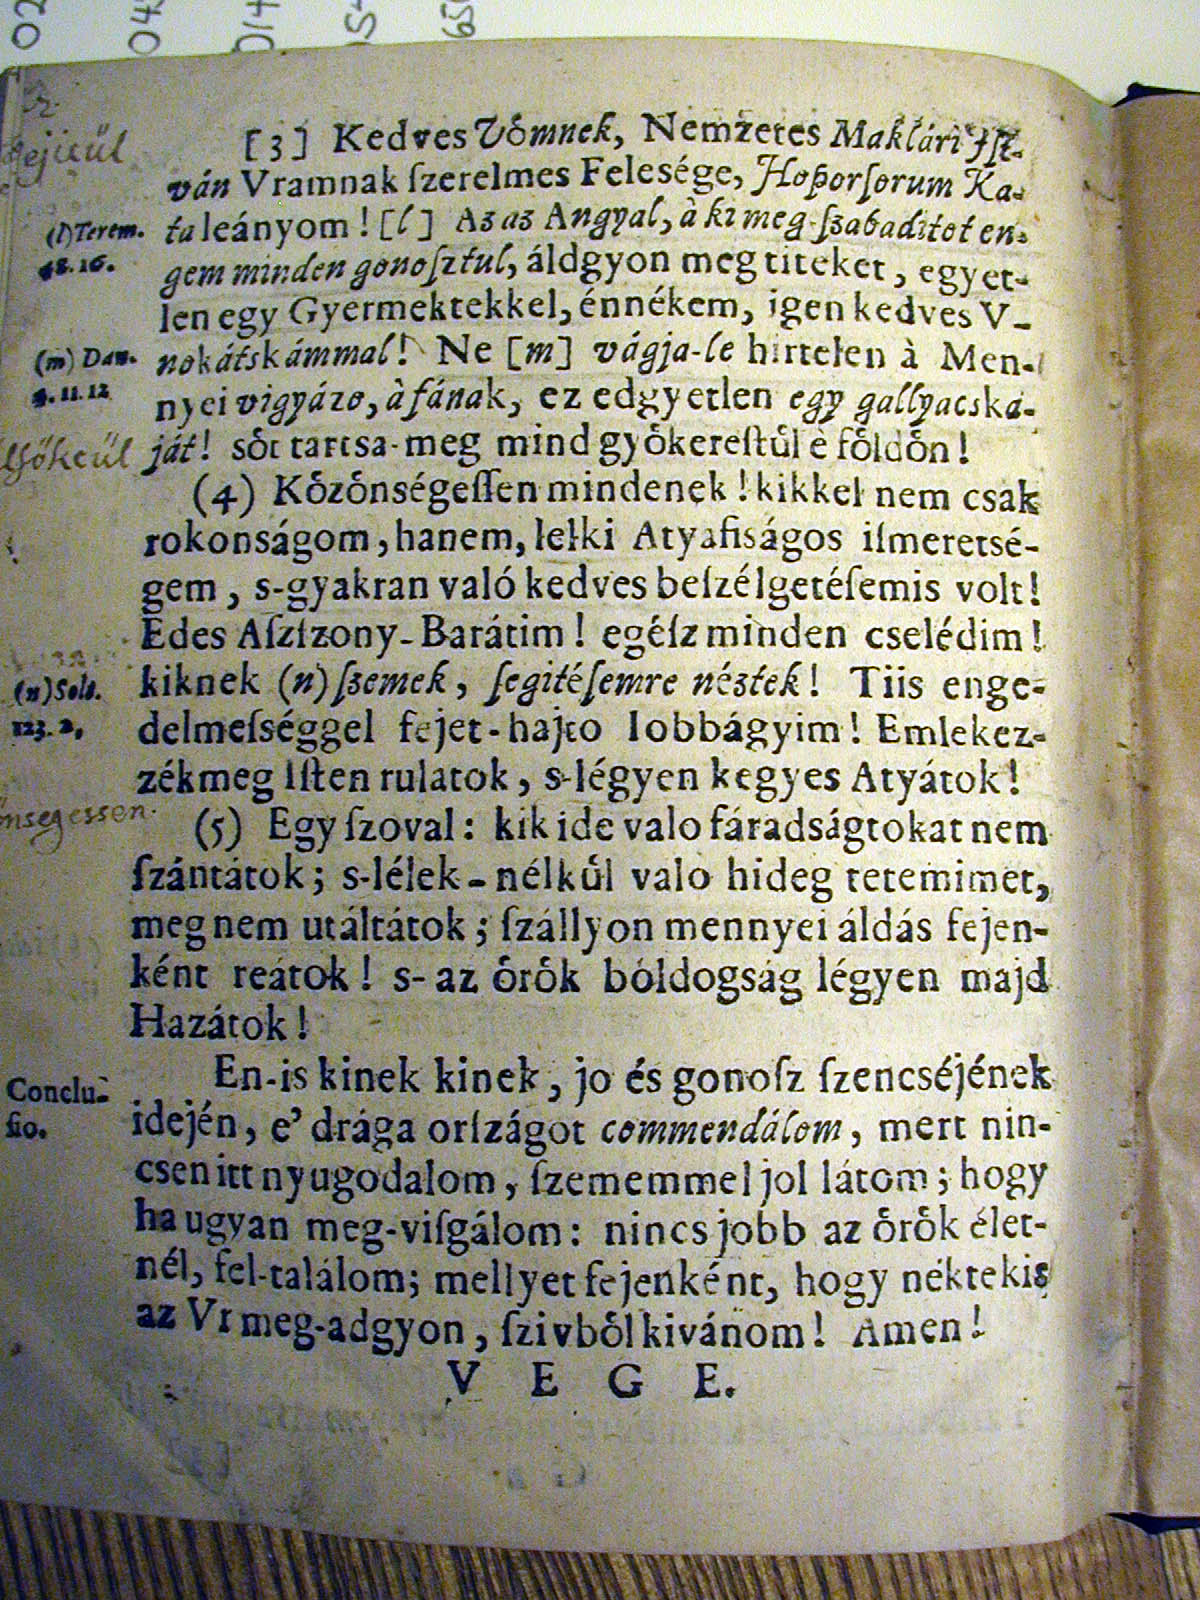 [3] Kedves Vőmnek, Nemzetes Maklári Iſt-
ván Vramnak ſzerelmes Felesége, Hoporſorum Ka-
ta leányom! [l] Az az Angyal, à ki meg-ſzabaditot en-
gem minden gonoſztul, áldgyon meg titeket, egyet-
len egy Gyermektekkel, énnékem, igen kedves V-
nokátskámmal! Ne [m] vágja-le hirtelen à Men-
nyei vigyázo, à fának, ez edgyetlen egy gallyacská-
ját! sőt tartsa-meg mind győkereſtűl è főldőn!
(4) Kőzőnségeſſen mindenek! kikkel nem csak
rokonságom, hanem, lelki Atyafiságos iſmeretsé-
gem, s-gyakran való kedves beſzélgetéſemis volt!
Edes Aſztzony-Barátim! egéſz minden cselédim!
kiknek (n) ſzemek, ſegitéſemre néztek! Tiis enge-
delmeſséggel fejet-hajto Iobbágyim! Emlekez-
zékmeg Iſten rulatok, s-légyen kegyes Atyátok!
(5) Egy ſzoval: kik ide valo fáradságtokat nem
ſzántátok; s-lélek-nélkűl valo hideg tetemimet,
meg nem utáltátok; ſzállyon mennyei áldás fejen-
ként reátok! s-az őrők bóldogság légyen majd
Hazátok!
En-is kinek kinek, jo és gonoſz ſzencséjének
idején, e' drága orſzágot commendálom, mert nin-
csen itt nyugodalom, ſzememmel jol látom; hogy
ha ugyan meg-viſgálom: nincs jobb az őrők élet-
nél, fel-talalom; mellyet fejenként, hogy néktekis
az Vr meg-adgyon, ſzivből kivánom! Amen!
V E G E.
(l) Terem.
48. 16.
(m) Dan.
4. 11. 12
(n) Solt.
123. 2,
Conclu-
ſio.